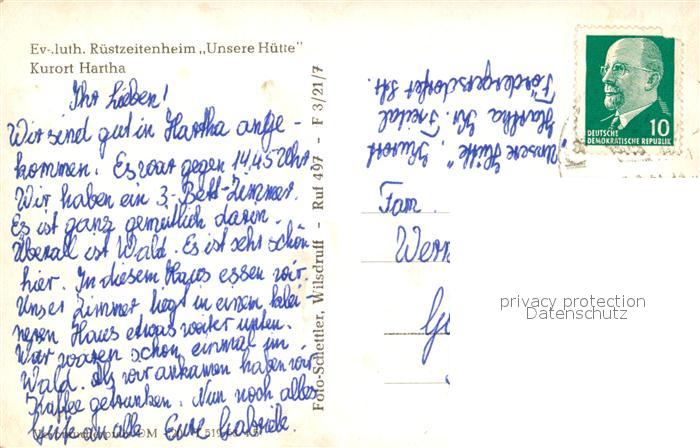 Ev-.luth. Rüstzeitenheim „Unsere Hütte"
Kurort Hartha
Ihr Lieben!
Wir sind gut in Hartha ange-
kommen. Es war gegen 14.45 Uhr
Wir haben ein 3-Bett-Zimmer.
Es ist ganz gemütlich darin.
Überall ist Wald. Es ist sehr schön
hier. In diesem Haus essen wir.
Unser Zimmer liegt in einem klei-
neren Haus etwas weiter unten.
Wir waren schon einmal im
Wald. Als wir ankamen haben wir
Kaffee getrunken. Nun noch alles
Gute an alle Eure Gabriele.
Foto-Schettler, Wilsdruff - Ruf 497 - F 3/21/7
„Unsere Hütte", Kurort
Hartha Kr. Freital
Fördergersdorfer Str.
DEUTSCHE
DEMOKRATISCHE REPUBLIK
10
Fam.
Wern
privacy protection
Datenschutz